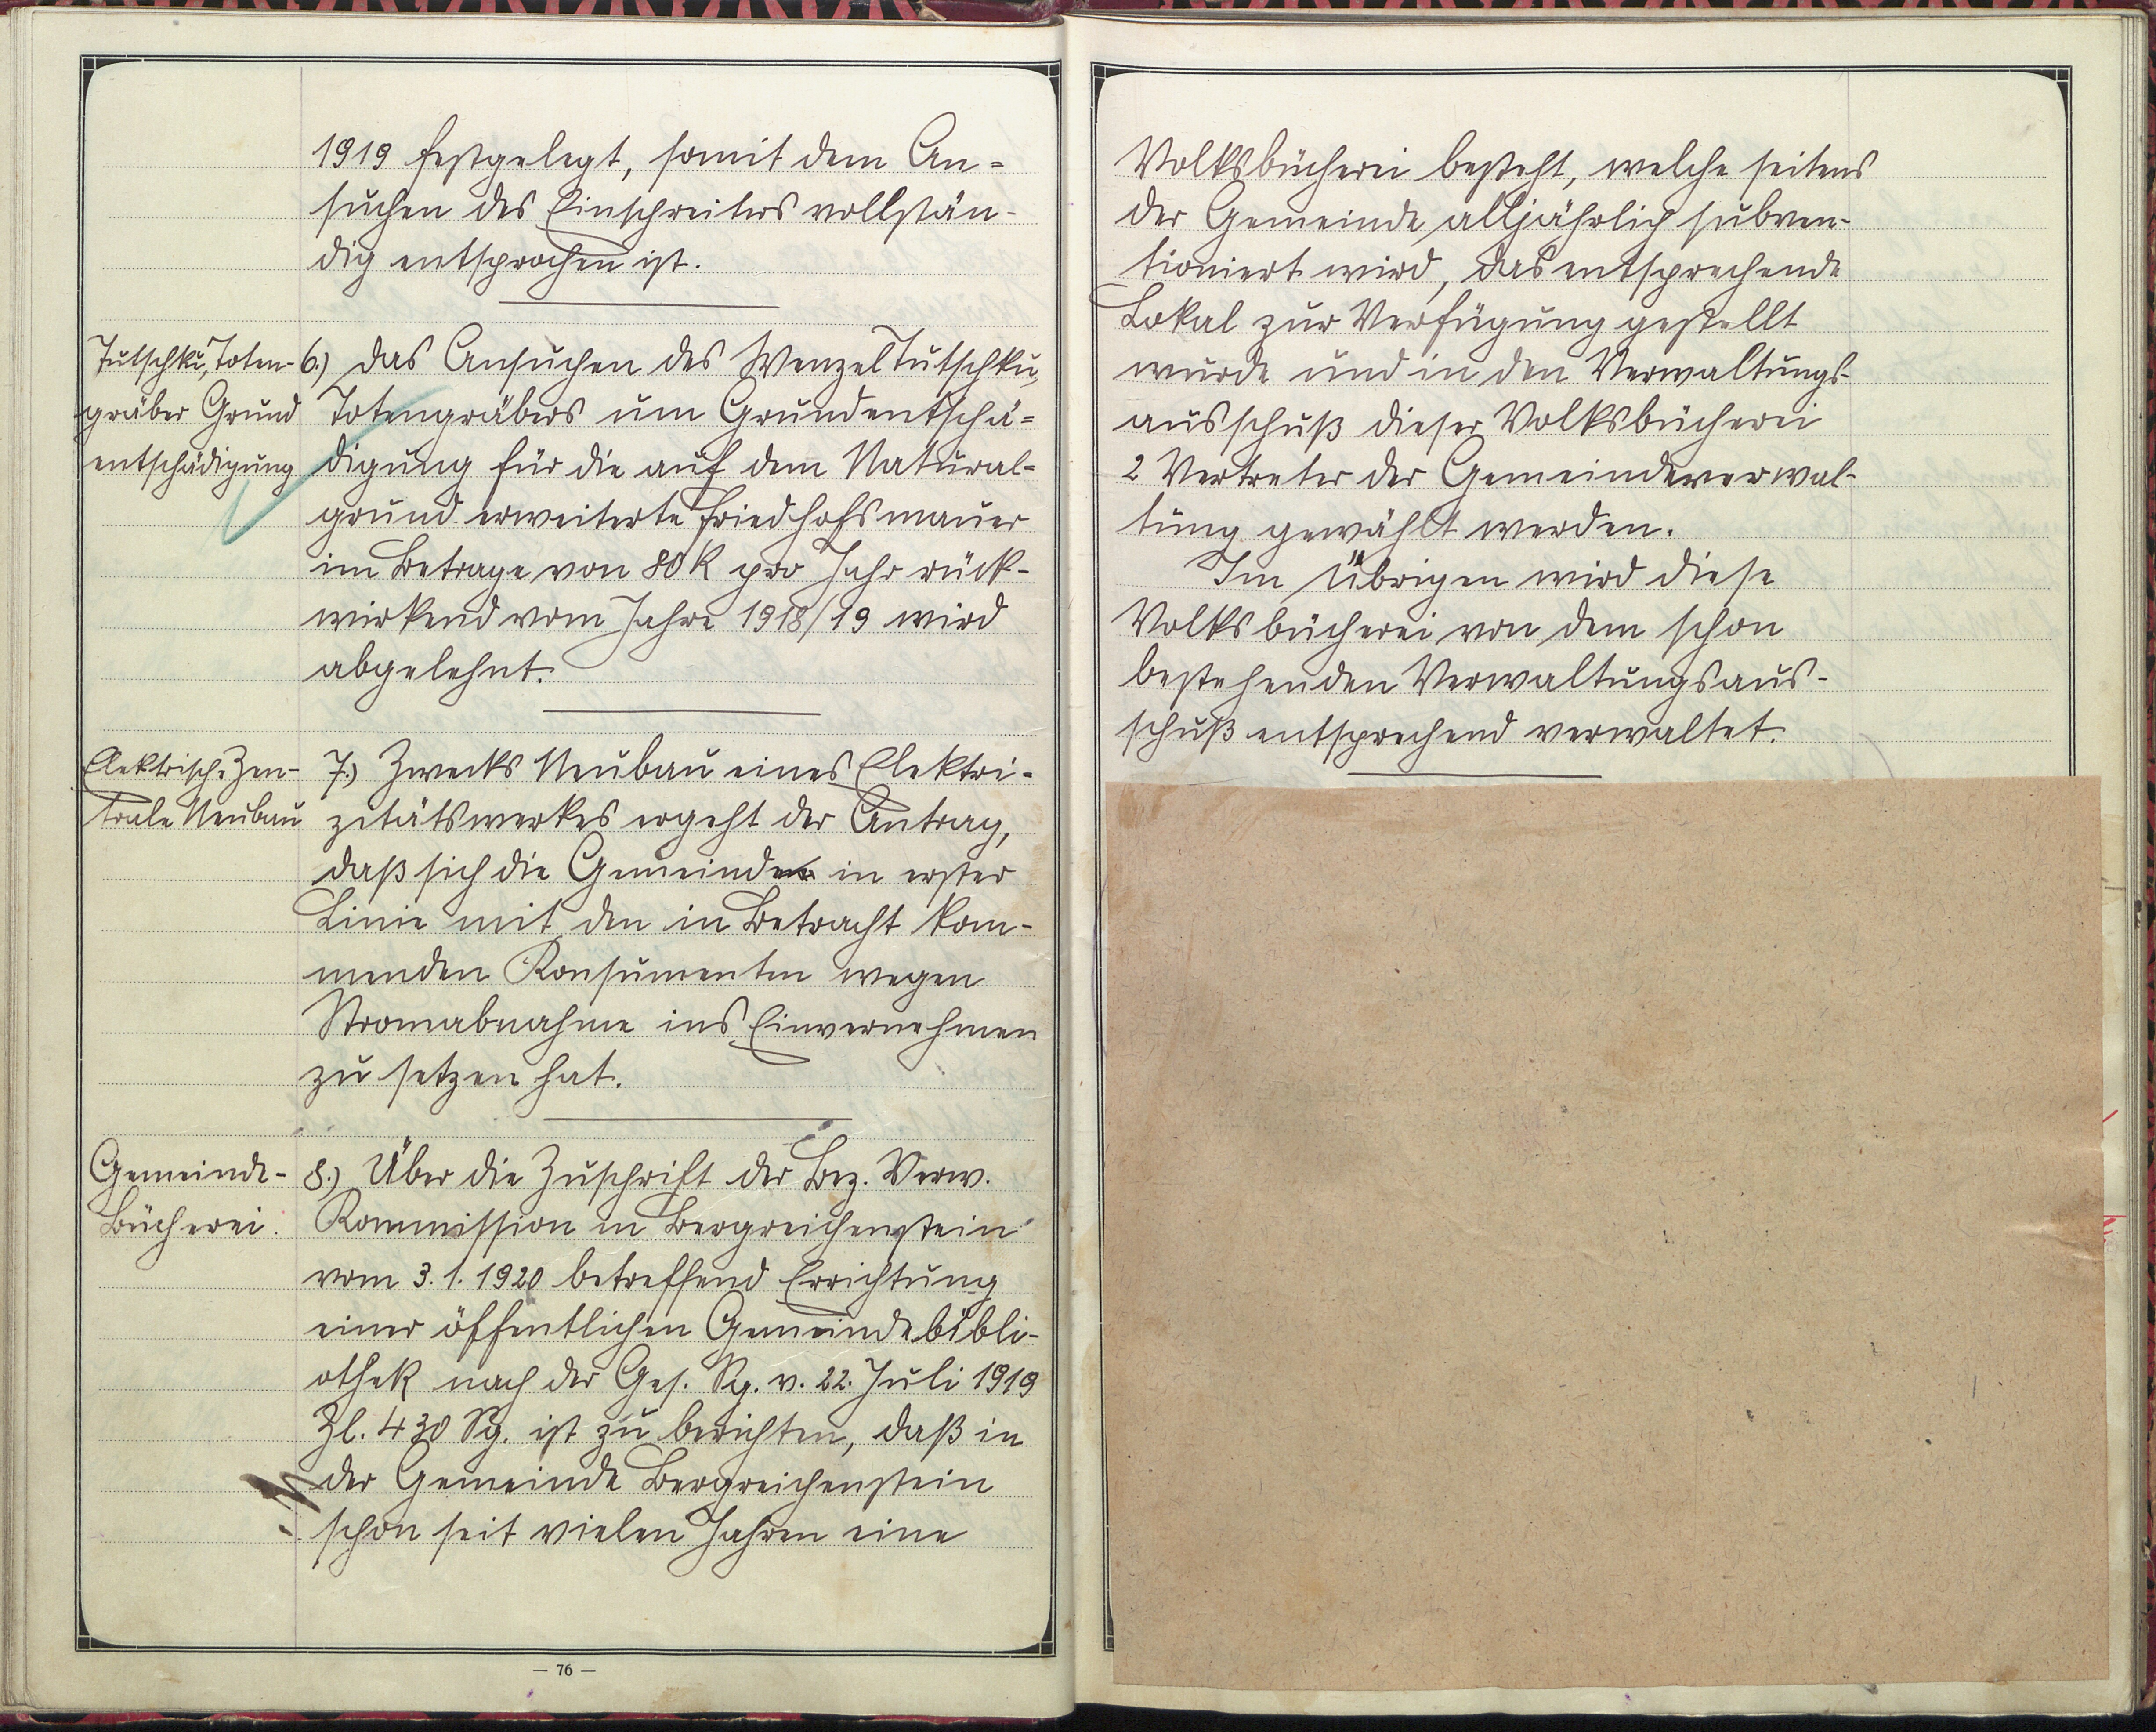 1919 festgelegt, somit dem An=
suchen des Einschreiters vollstän-
dig entsprochen ist.
Tutschku, Toten-
gräber Grund
entschädigung
6.) Das Ansuchen des Wenzel Tutschku,
Totengräbers um Grundentschä=
digung für die auf dem Natural=
grund erweiterte Friedhofsmauer
im Betrage von 80 K pro Jahr rück-
wirkend vom Jahre 1918/19 wird
abgelehnt.
Elektrische Zen-
trale Neubau
7.) Zwecks Neubau eines Elektri-
zitätswerkes ergeht der Antrag,
daß sich die Gemeinde in erster
Linie mit den in Betracht kom-
menden Konsumenten wegen
Stromabnahme ins Einvernehmen
zu setzen hat.
Gemeinde-
Bücherei.
8.) Über die Zuschrift der Bez. Verw.
Kommission in Bergreichenstein
vom 3.1.1920 betreffend Errichtung
einer öffentlichen Gemeindebibli-
othek nach der Ges. Sg. v. 22. Juli 1919
Zl. 430 Sg. ist zu berichten, daß in
der Gemeinde Bergreichenstein
schon seit vielen Jahren eine
— 76 —
Volksbücherei besteht, welche seitens
der Gemeinde alljährlich subven-
tioniert wird, das entsprechende
Lokal zur Verfügung gestellt
wurde und in den Verwaltungs-
ausschuß dieser Volksbücherei
2 Vertreter der Gemeindeverwal-
tung gewählt werden.
Im Übrigen wird diese
Volksbücherei von dem schon
bestehenden Verwaltungsaus-
schuß entsprechend verwaltet.